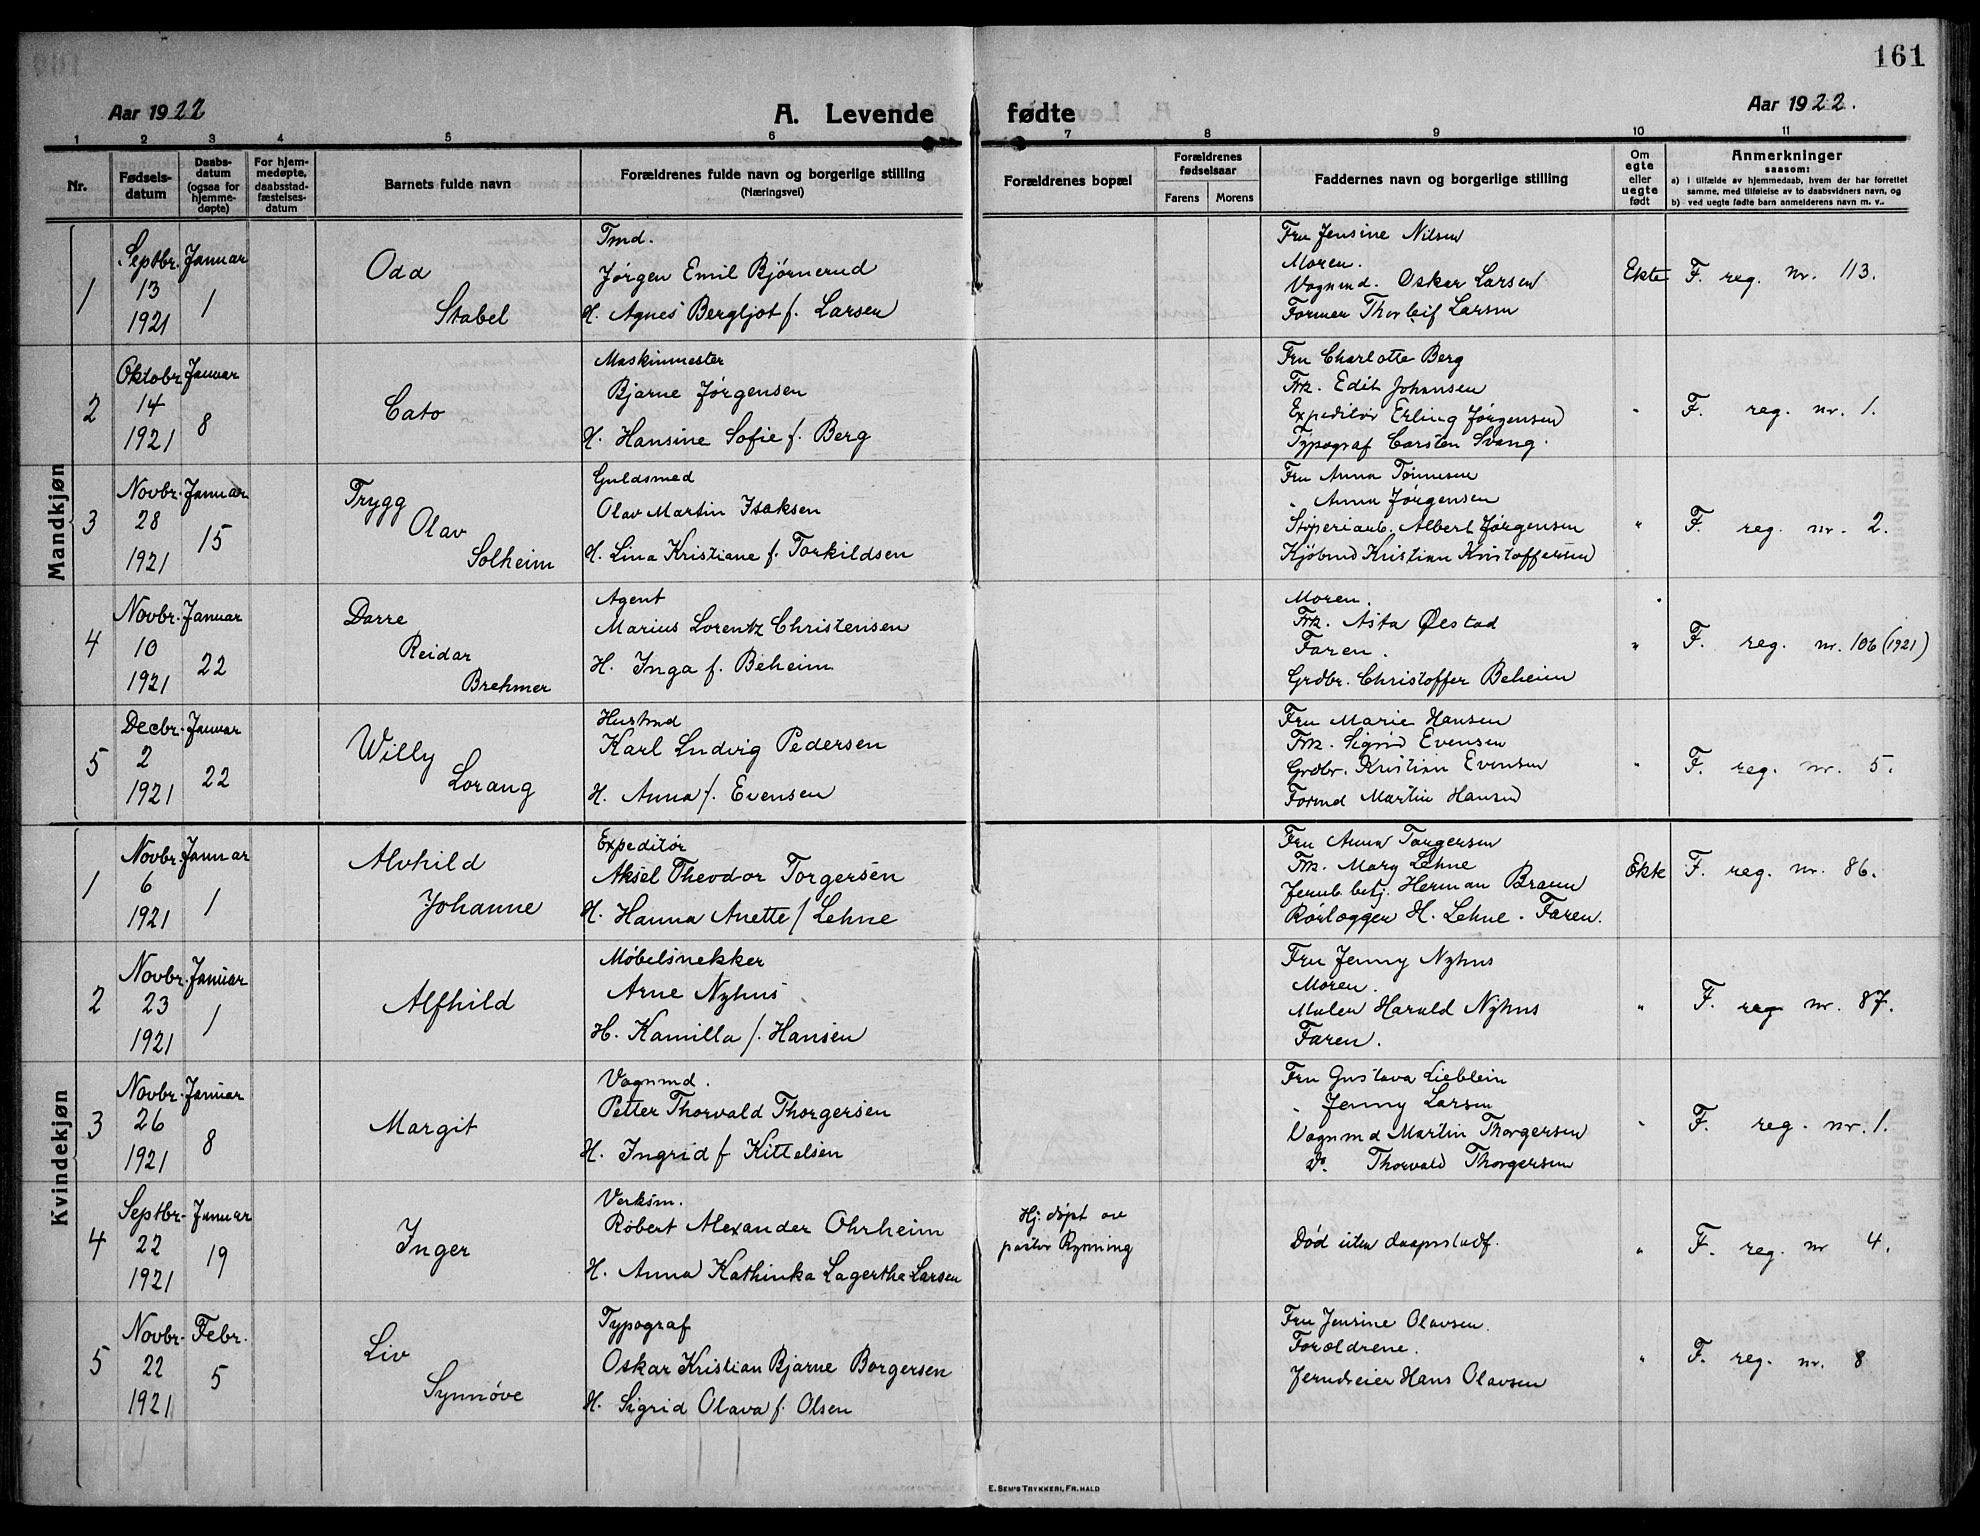 161
Aar 1922
A. Levende fødte
Aar 1922.
1 2 3 4 5 6 7 8 9 10 11
Nr.
Fødsels-
datum
Daabs-
datum
(ogsaa for
hjemme-
døpte)
For hjem-
medøpte,
daabsstad-
fæstelses-
datum
Barnets fulde navn
Forældrenes fulde navn og borgerlige stilling
(Næringsvei)
Forældrenes bopæl
Forældrenes
fødselsaar
Farens Morens
Faddernes navn og borgerlige stilling
Om
egte
eller
uegte
født
Anmerkninger
saasom:
a) I tilfælde av hjemmedaab, hvem der har forrettet
samme, med tilføielse av to daabsvidners navn, og
b) ved uegte fødte barn anmelderens navn m. v..
Mandkjøn
1
Septbr.
13
1921
Januar
1
Odd
Stabel
Tmd.
Jørgen Emil Bjørnerud
H. Agnes Bergljot f. Larsen
Fru Jensine Nilsen
Moren.
Vognmd. Oskar Larsen
Former Thorleif Larsen
Ekte
F. reg. nr. 113.
2
Oktobr.
14
1921
Januar
8
Cato
Maskinmester
Bjarne Jørgensen
H. Hansine Sofie f. Berg
Fru Charlotte Berg
Frk. Edit Johansen
Expeditør Erling Jørgensen
Typograf Carsten Svang.
"
F. reg. nr. 1.
3
Novbr.
28
1921
Januar
15
Trygg
Olav
Solheim
Guldsmed
Olav Martin Isaksen
H. Lina Kristiane f. Torkildsen
Fru Anna Tønnesen
" Anna Jørgensen
Støperiarb. Albert Jørgensen
Kjøbmd Kristian Kristoffersen
"
F. reg. nr. 2.
4
Novbr.
10
1921
Januar
22
Darre
Reidar
Brehmer
Agent
Marius Lorentz Christensen
H. Inga f. Beheim
Moren.
Frk. Asta Øestad
Faren.
Grdbr. Christoffer Beheim
"
F. reg. nr. 106 (1921)
5
Decbr.
2
1921
Januar
22
Willy
Lorang
Karl Ludvig Pedersen
H. Anna f. Evensen
Fru Marie Hansen
Frk. Sigrid Evensen
Grdbr. Kristian Evensen
Formd Martin Hansen
"
F. reg. nr. 5.
Kvindekjøn
1
Novbr.
6
1921
Januar
1
Alvhild
Johanne
Expeditør
Aksel Theodor Torgersen
H. Hanna Anette f Lehne
Fru Anna Torgersen
Frk. Mary Lehne
Jernb. betj. Herman Braun
Rørlægger H. Lehne. Faren.
Ekte
F. reg. nr. 86.
2
Novbr.
23
1921
Januar
1
Alfhild
Møbelsnekker
Arne Nyhus
H. Kamilla f. Hansen
Fru Jenny Nyhus
Moren.
Maler Harald Nyhus
Faren.
"
F. reg nr. 87.
3
Novbr.
26
1921
Januar
8
Margit
Vognmd.
Petter Thorvald Thorgersen
H. Ingrid f Kittelsen
Fru Gustava Lieblein
" Jenny Larsen
Vognmd Martin Thorgersen
Do Thorvald Thorgersen
"
F. reg. nr. 1.
4
Septbr.
22
1921
Januar
19
Inger
Verksm.
Robert Alexander Ohrheim
H. Anna Kathinka Lagertha Larsen
Hj. døpt av
pastor Rynning
Død uten daapsstadf.
"
F. reg. nr 4.
5
Novbr.
22
1921
Febr.
5
Liv
Synnøve
Typograf
Oskar Kristian Bjarne Borgersen
H. Sigrid Olava f. Olsen
Fru Jensine Olavsen.
Forældrene.
Jerndreier Hans Olavsen
"
F. reg. nr. 8
E. SEM'S TRYKKERI, FR. HALD